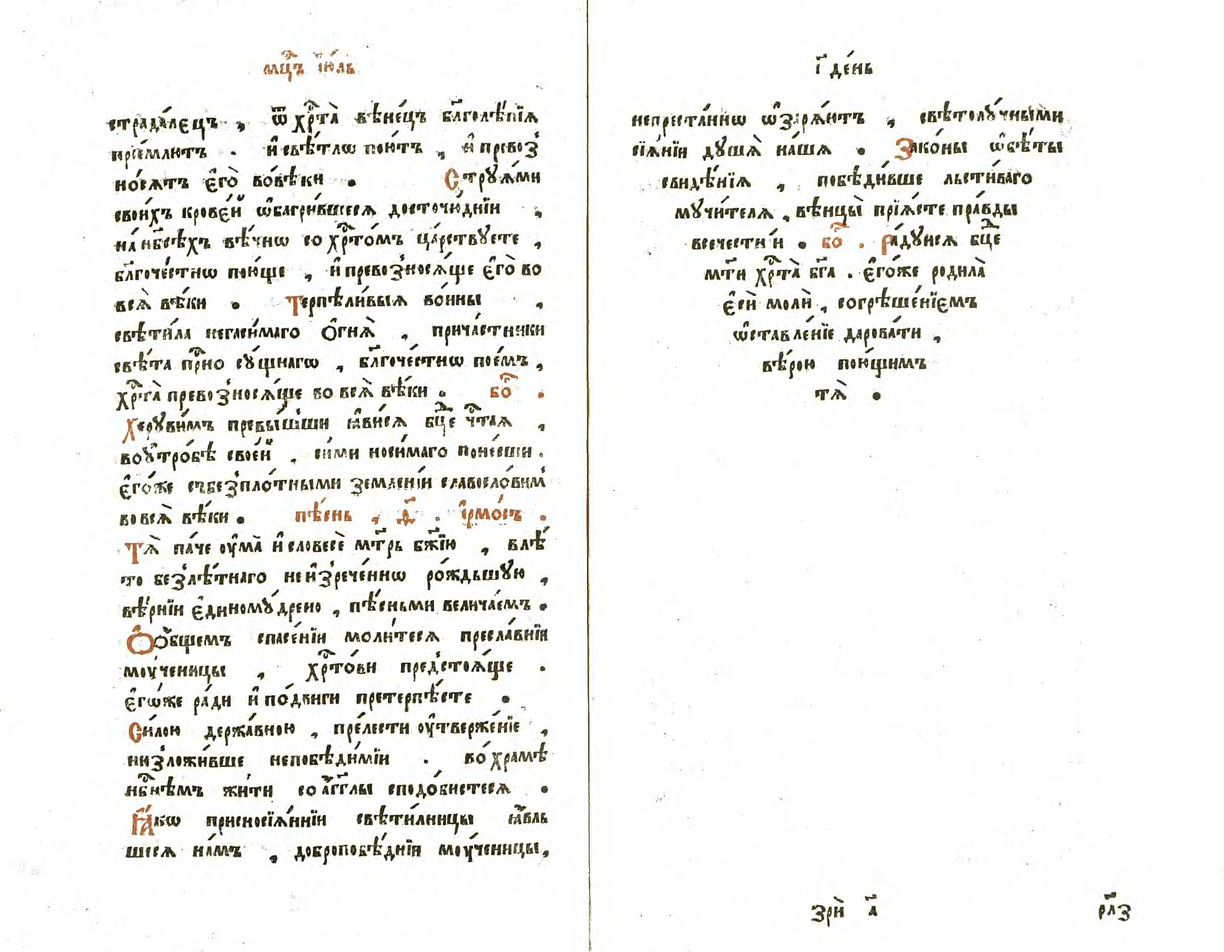 мц҃ъ і҆ю́ль
страда́лецъ , ѿ хрⷭ҇та̀ вѣне́цъ бл҃голѣ́пїѧ
прїе́млютъ . и҆ свѣ́тлѡ пою́тъ , и҆ превоз̾
но́сѧтъ є҆го̀ во вѣ́ки . Стрꙋѧ́ми
свои́хъ крове́й ѡ҆багри́вшесѧ досточю́днїи ,
на нб҃сѣ́хъ вѣ́чнѡ со хрⷭ҇то́мъ ца́рствꙋете ,
бл҃гоче́стнѡ пою́ще , и҆ превозносѧ́ще є҆го̀ во
всѧ̀ вѣ́ки . Терпѣли́выѧ во́ины ,
свѣти́ла негаси́маго ѻ҆гнѧ̀ , прича́стники
свѣ́та при́сно сꙋ́щнагѡ , бл҃гоче́стнѡ пое́мъ ,
хрⷭ҇та̀ превозносѧ́ще во всѧ̀ вѣ́ки . бо҃ .
Херꙋви́мъ превы́шши ꙗ҆ви́сѧ бц҃е чтⷭ҇аѧ ,
во ᲂу҆тро́бѣ свое́й , си́ми носи́маго поне́сши .
є҆го́же съ безпло́тными земле́нїи славосло́вим̾
во всѧ̀ вѣ́ки . пѣ́снь , д҃ . і҆рмо́съ .
Тѧ̀ па́че ᲂу҆ма̀ и҆ словесѐ мт҃рь бж҃їю , в лѣ́
то безлѣ́тнаго неизрече́ннѡ ро́ждьшꙋю ,
вѣ́рнїи є҆диномꙋ́дрено , пѣ́сньми велича́емъ .
Ѻ҆ о҆́бщемъ спасе́нїи моли́тесѧ пресла́внїи
мꙋ́ченицы , хрⷭ҇то́ви предстоѧ́ще .
є҆гѡ́же ра́ди и҆ по́двиги претерпѣ́сте .
Си́лою держа́вною , пре́лести ᲂу҆тверже́нїе ,
низложи́вше непобѣди́мїи . во хра́мѣ
нбⷭ҇нѣмъ жи́ти со а҆́гг҃лы сподо́бистесѧ .
Ꙗ҆́кѡ присносїѧ́ннїи свѣти́лницы ꙗ҆́вль
шесѧ на́мъ , доброполѣ́днїи мꙋ́ченицы ,
і҃ де́нь
непреста́ннѡ ѡ҆зарѧ́ютъ , свѣтолꙋ́чными
сїѧ́нїи дꙋшѧ̀ на́шѧ . Зако́ны ѡ҆бѣ́ты
свидѣ́нїѧ , побѣди́вше льсти́ваго
мꙋчи́телѧ , вѣнцы̀ прїѧ́сте пра́вды
всече́стнїи . бо҃ . ра́дꙋисѧ бц҃е
мт҃и хрⷭ҇та̀ бг҃а . є҆го́же роди́ла
є҆сѝ молѝ , согрѣше́нїємъ
ѡ҆ставле́нїе дарова́ти ,
вѣ́рою пою́щимъ
тѧ̀ .
зрѝ а҃
рл҃з